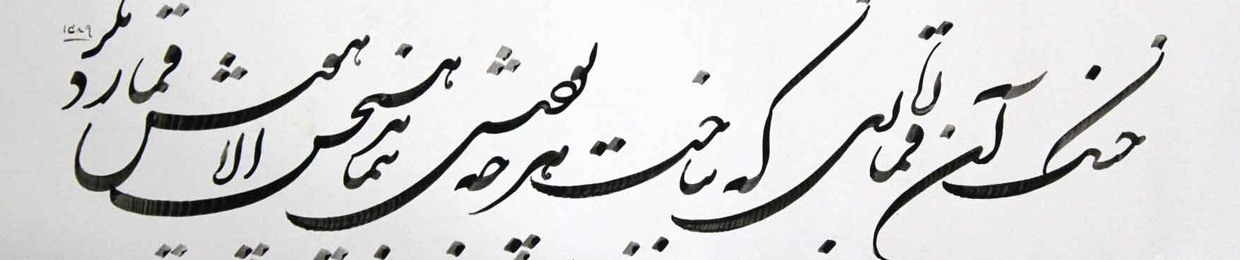 خنک آن قماربازی که بباخت هر چه بودش
بنماند هیچش الا هوس قمار دیگر